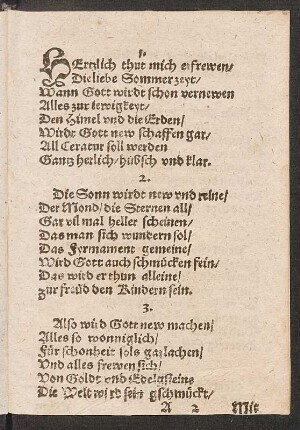 1.
HErtzlich thut mich erfrewen/
Die liebe Sommerzeyt/
Wann Gott wirdt schon vernewen
Alles zur ewigkeyt/
Den Himel vnd die Erden/
Wirdt Gott new schaffen gar/
All Ceratur soll werden
Gantz herlich/ hübsch vnd klar.
2.
Die Sonn wirdt new vnd reine/
Der Mond/ die Sternen all/
Gar vil mal heller scheinen/
Das man sich wundern sol/
Das Formament gemeine/
Wird Gott auch schmücken fein/
Das wird er thun alleine/
zur freüd den Kindern sein.
3.
Also wird Gott new machen/
Alles so wonniglich/
Für schonheit sols gar lachen/
Vnd alles frewen sich/
Von Goldt vnd Edelgsteine
Die Welt wird sein gschmückt/
A 2 Mit